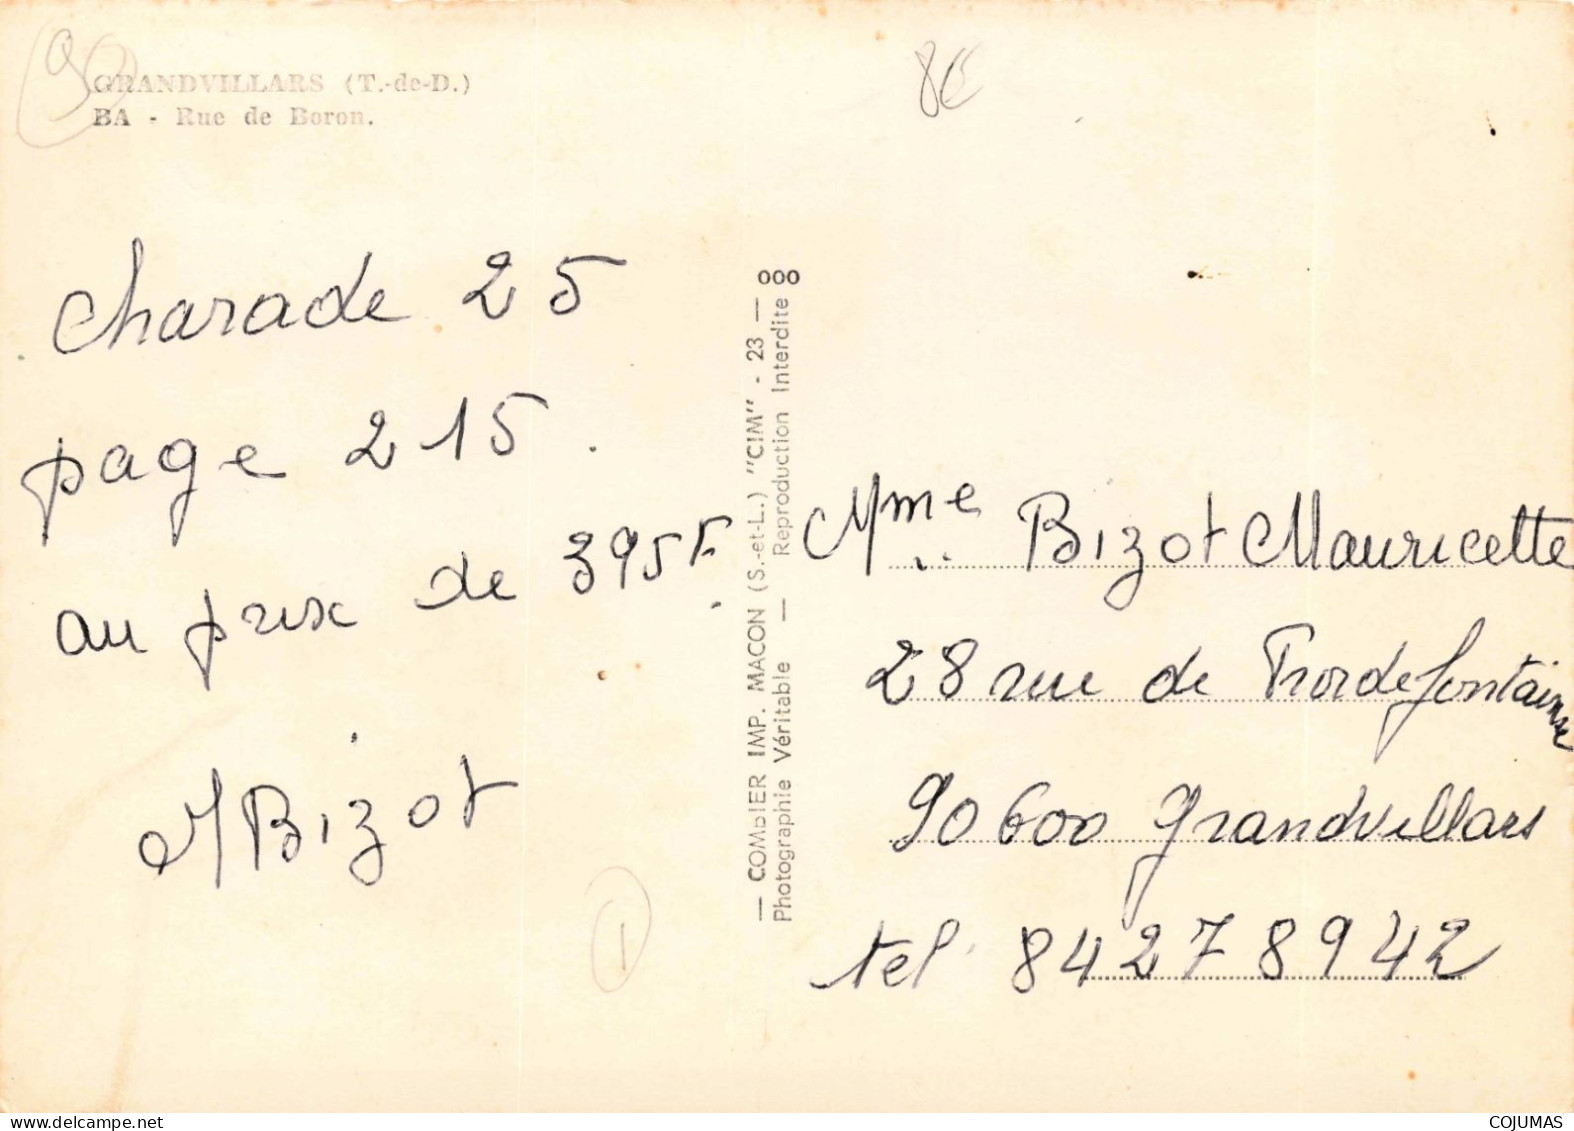 90
GRANDVILLARS (T.-de-D.)
BA - Rue de Boron.
8€
Charade 25
page 215.
au prix de 395F.
MBizot
1
— COMBIER IMP. MACON (S.-et-L.) "CIM" - 23 —
Photographie Véritable — Reproduction Interdite
Mme Bizot Mauricette
28 rue de Frordefontaine
90600 Grandvillars
tel 84278942
www.delcampe.net
COJUMAS